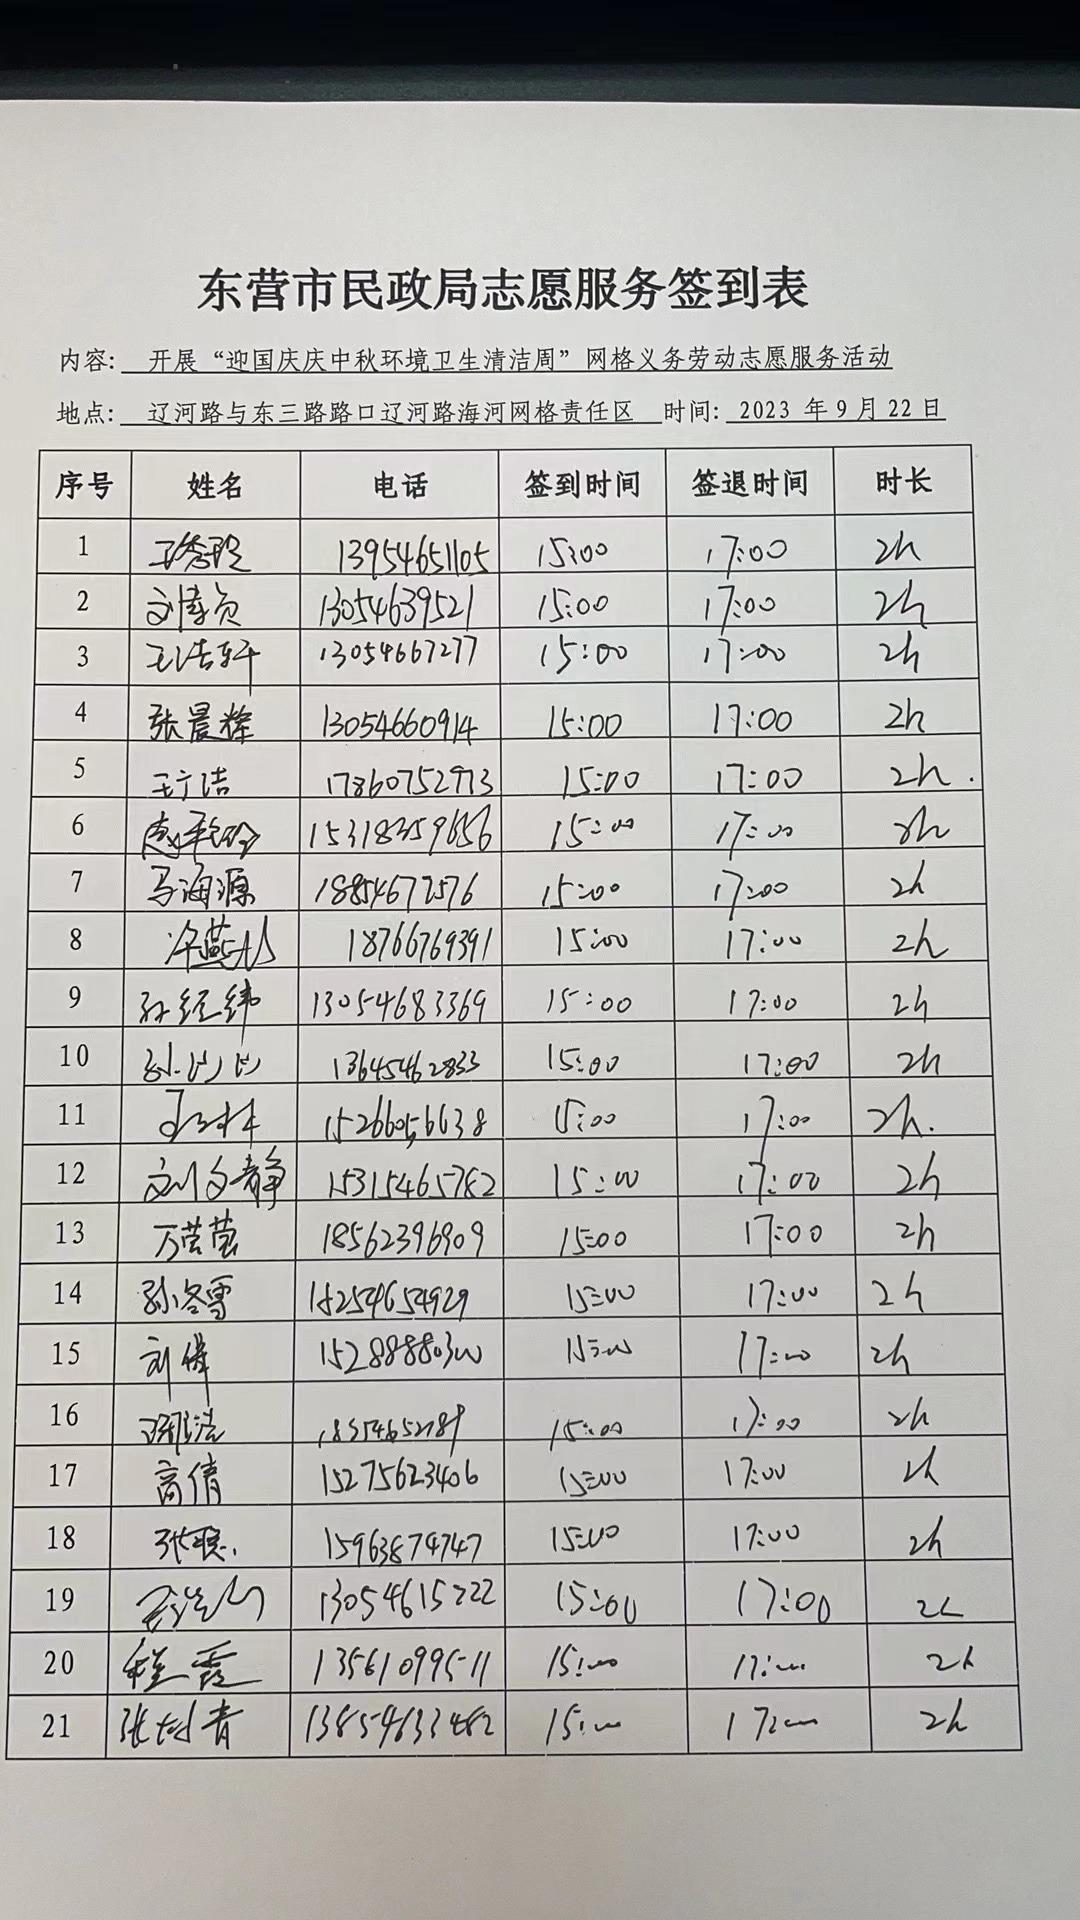 东营市民政局志愿服务签到表
内容: 开展“迎国庆庆中秋环境卫生清洁周”网格义务劳动志愿服务活动
地点: 辽河路与东三路路口辽河路海河网格责任区 时间: 2023 年 9 月 22 日
序号 姓名 电话 签到时间 签退时间 时长
1 王秀玲 13954651105 15:00 17:00 2h
2 刘博贤 13054639521 15:00 17:00 2h
3 王浩轩 13054667277 15:00 17:00 2h
4 张晨辉 13054660914 15:00 17:00 2h
5 王广洁 17860752973 15:00 17:00 2h.
6 15318359656 15:00 17:00 2h
7 马海源 15:00 17:00 2h
8 18766769391 15:00 17:00 2h
9 孙经纬 13054683369 15:00 17:00 2h
10 13645462833 15:00 17:00 2h
11 15266056638 15:00 17:00 2h.
12 刘文静 15315465782 15:00 17:00 2h
13 万莹莹 18562396909 15:00 17:00 2h
14 孙冬雪 18254654929 15:00 17:00 2h
15 刘伟 15288880300 15:00 17:00 2h
16 15:00 17:00 2h
17 高倩 15275623406 15:00 17:00 2h
18 张聪 15963874747 15:00 17:00 2h
19 13054615222 15:00 17:00 2h
20 程霞 13561099511 15:00 17:00 2h
21 13854633482 15:00 17:00 2h